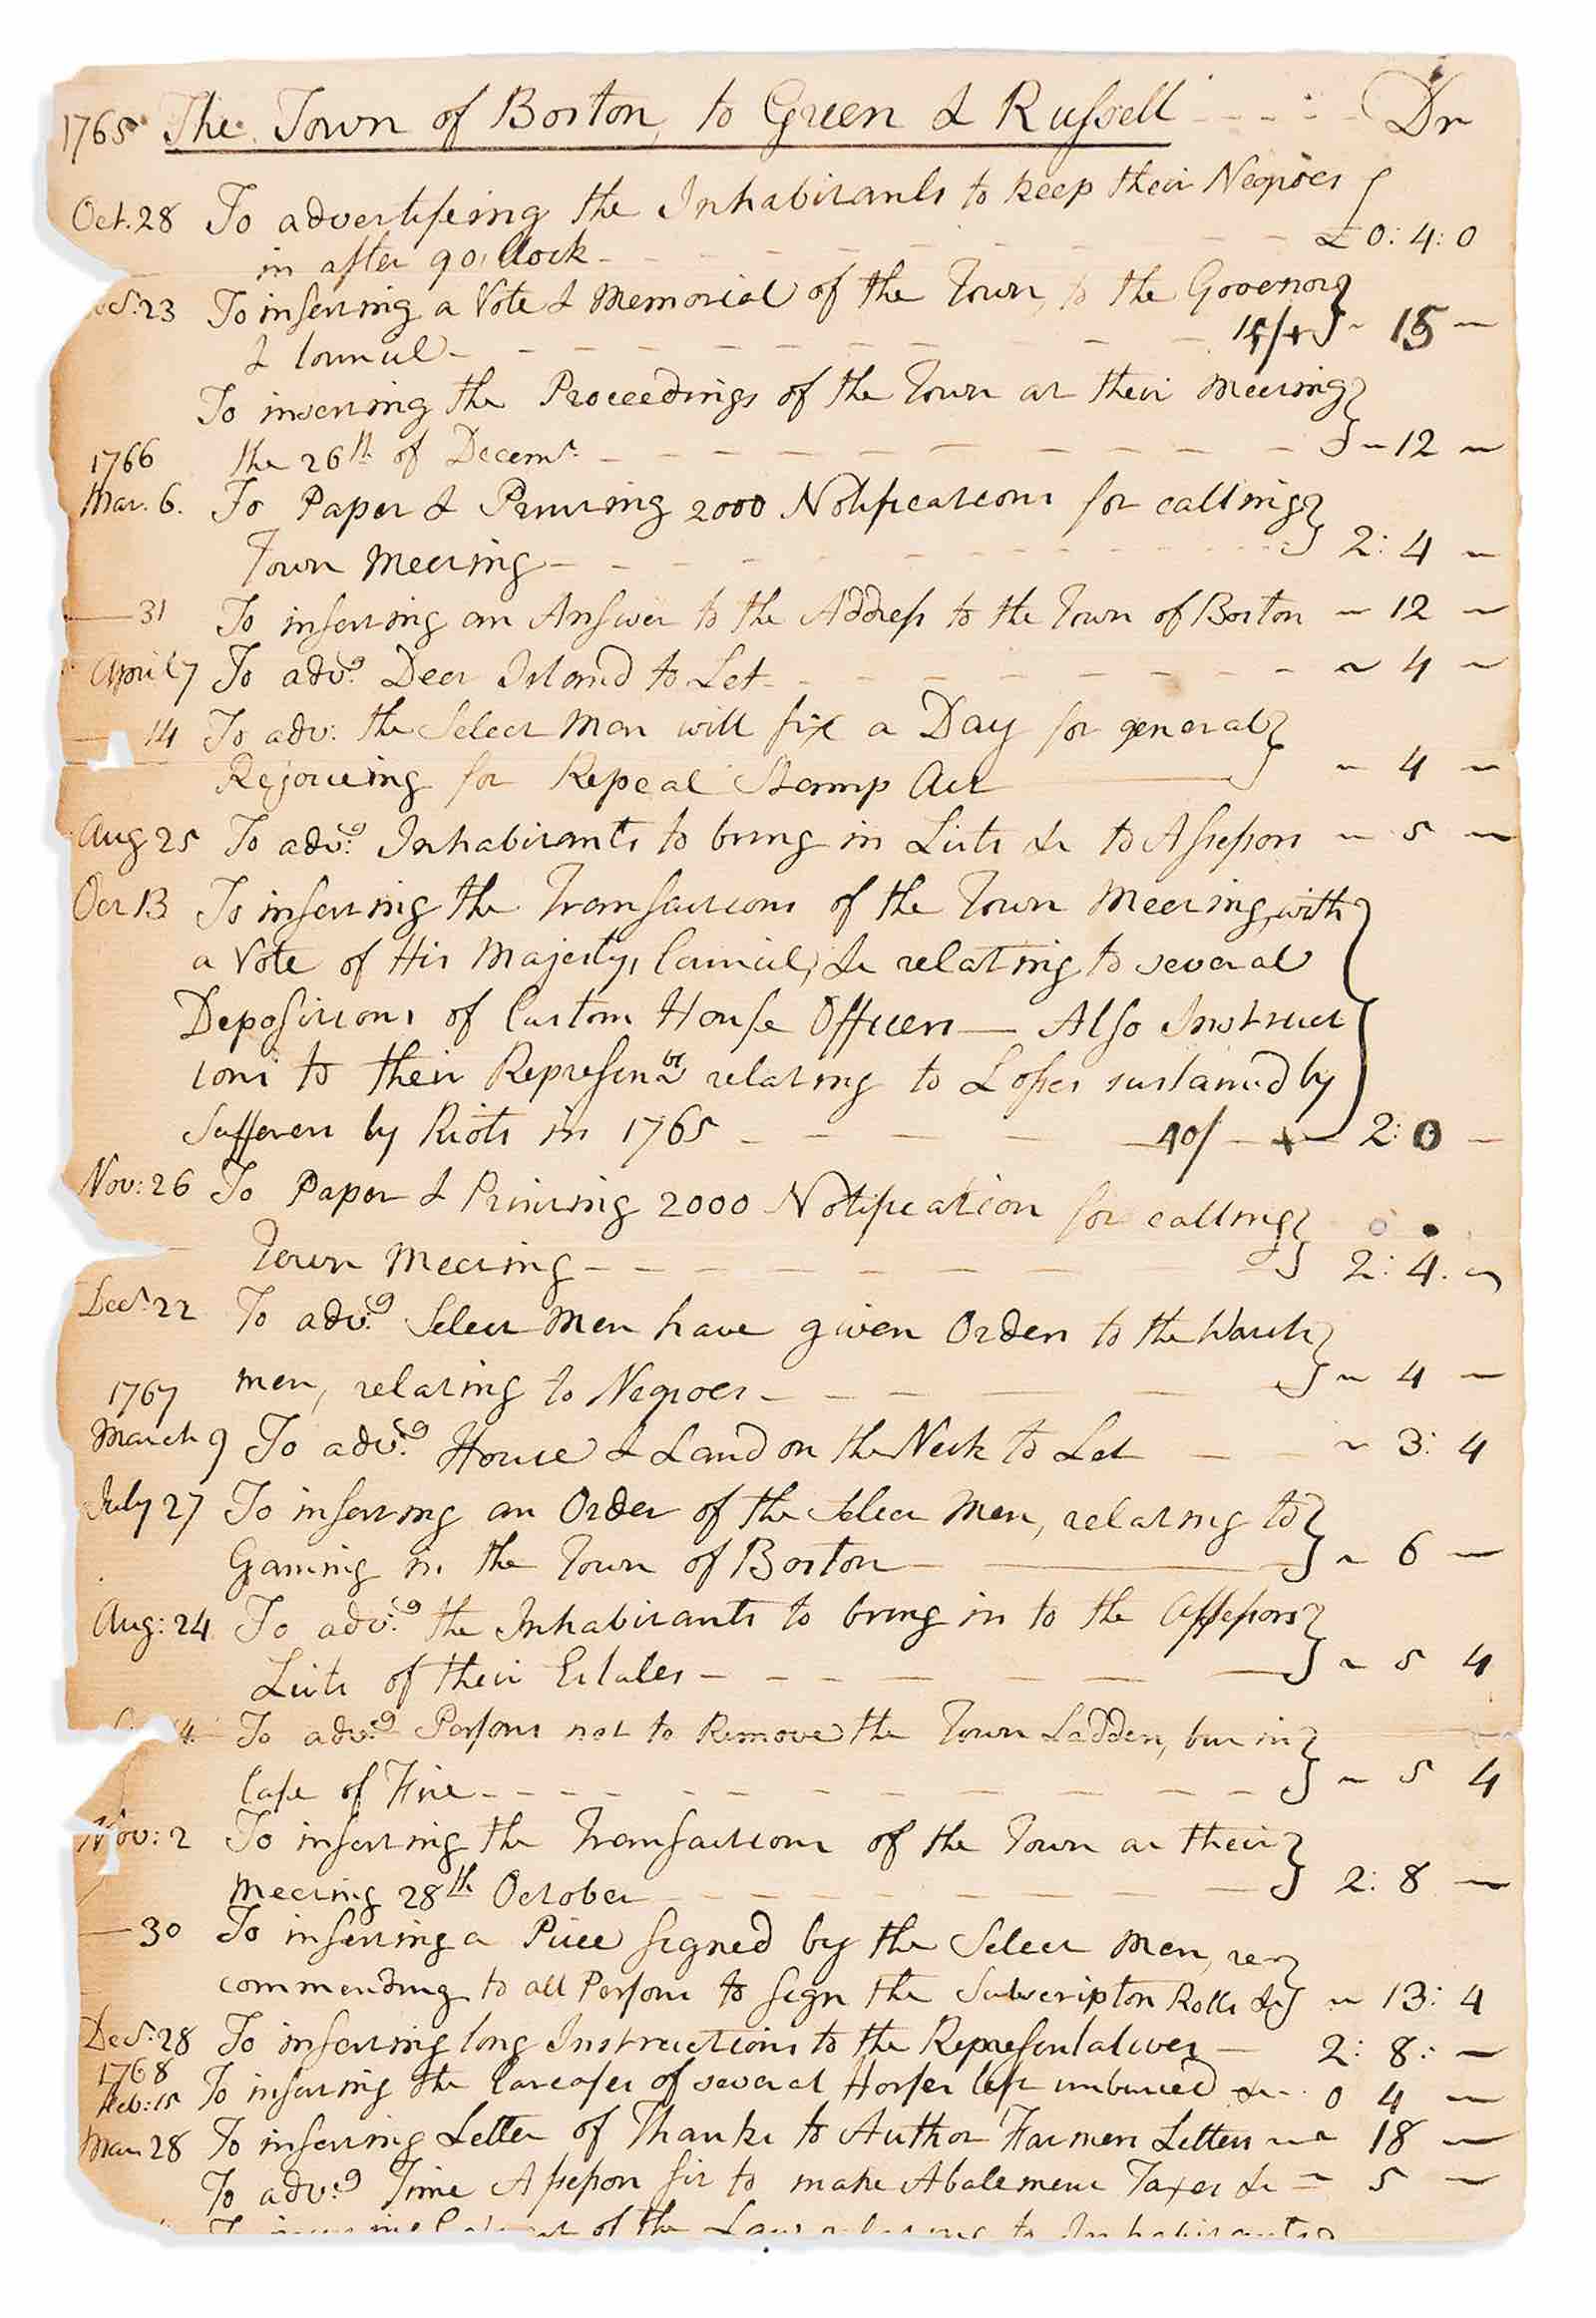 1765 The Town of Boston, to Green & Russell Dr
Oct. 28 To advertising the Inhabitants to keep their Negroes
in after 9 o'Clock £0:4:0
23 To inserting a Vote & Memorial of the Town, to the Govenor
& Council 15/4 ~ 15 ~
To inserting the Proceedings of the Town at their Meeting
1766 the 26th of Decemr. ~ 12 ~
Mar. 6. To Paper & Printing 2000 Notifications for calling
Town Meeting 2: 4 ~
31 To inserting an Answer to the Address to the Town of Boston ~ 12 ~
April 7 To advg. Deer Island to Let ~ 4 ~
14 To adv: the Select Men will fix a Day for general
Rejoiceing for Repeal Stamp Act ~ 4 ~
Aug 25 To advg. Inhabitants to bring in Lists &c to Assessors ~ 5 ~
Oct 13 To inserting the Transactions of the Town Meeting, with
a Vote of His Majestys Council, &c relating to several
Depositions of Custom House Officers — Also Instruct
ions to their Represen relating to Losses sustained by
Sufferers by Riots in 1765 40/ 2: 0 —
Nov: 26 To Paper & Printing 2000 Notification for calling
Town Meeting 2: 4. ~
Decr. 22 To advg. Select Men have given Orders to the Watch
men, relating to Negroes ~ 4 —
1767
March 9 To advg. House & Land on the Neck to Let ~ 3: 4
July 27 To inserting an Order of the Select Men, relating to
Gaming in the Town of Boston ~ 6 —
Aug: 24 To advg. the Inhabitants to bring in to the Assessors
Lists of their Estates ~ 5 4
4. To advg. Persons not to Remove the Town Ladders, but in
Case of Fire ~ 5 4
Nov: 2 To inserting the Transactions of the Town at their
Meeting 28th October 2: 8 —
— 30 To inserting a Piece signed by the Select Men, re
commending to all Persons to sign the Subscription Rolls &c ~ 13: 4
Decr. 28 To inserting long Instructions to the Representatives 2: 8: —
1768
Feb: 15 To inserting the Carcases of several Horses left unburied &c 0 4 —
Mar 28 To inserting Letter of Thanks to Author Farmers Letters ~ 18 —
To advg. Time Assessors sit to make Abatement Taxes &c ~ 5 —
of the Laws relating to Inhabitants